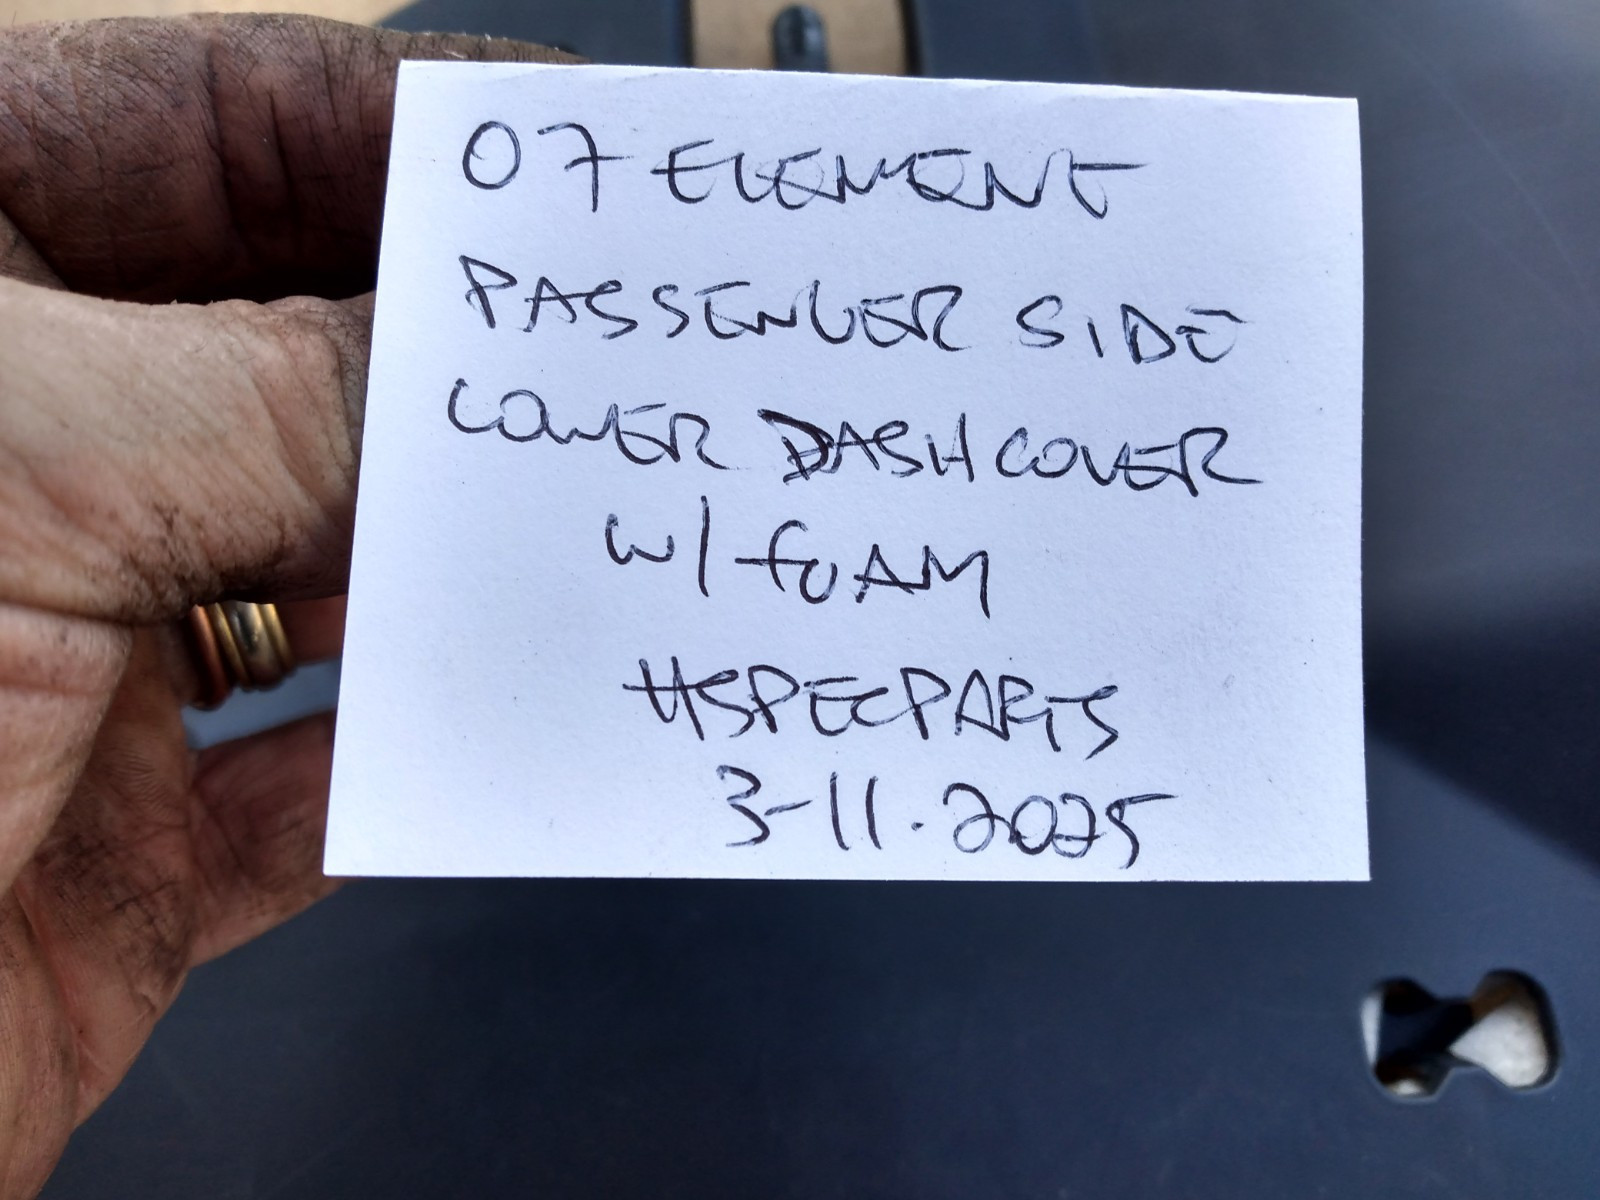 07 ELEMENT
PASSENGER SIDE
LOWER DASH COVER
W/ FOAM
HSPECPARTS
3-11.2025